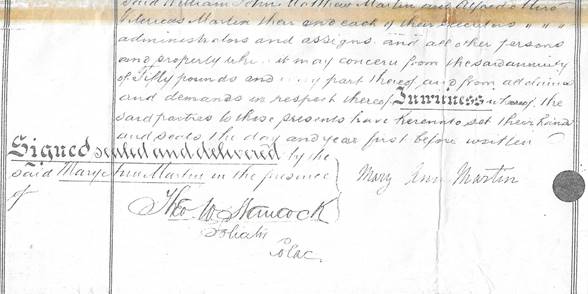 said William John Matthew Martin and Alfred
Martin their and each of their executors " " "
administrators and assigns and all other persons
and property who it may concern from the said annuity
of Fifty pounds and part thereof and from all claims
and demands in respect thereof. In witness whereof the
said parties to these presents have hereunto set their hands
and seals the day and year first before written
Signed sealed and delivered by the
said Mary Ann Martin in the presence
of
Mary Ann Martin
Theo W Hancock
Colac